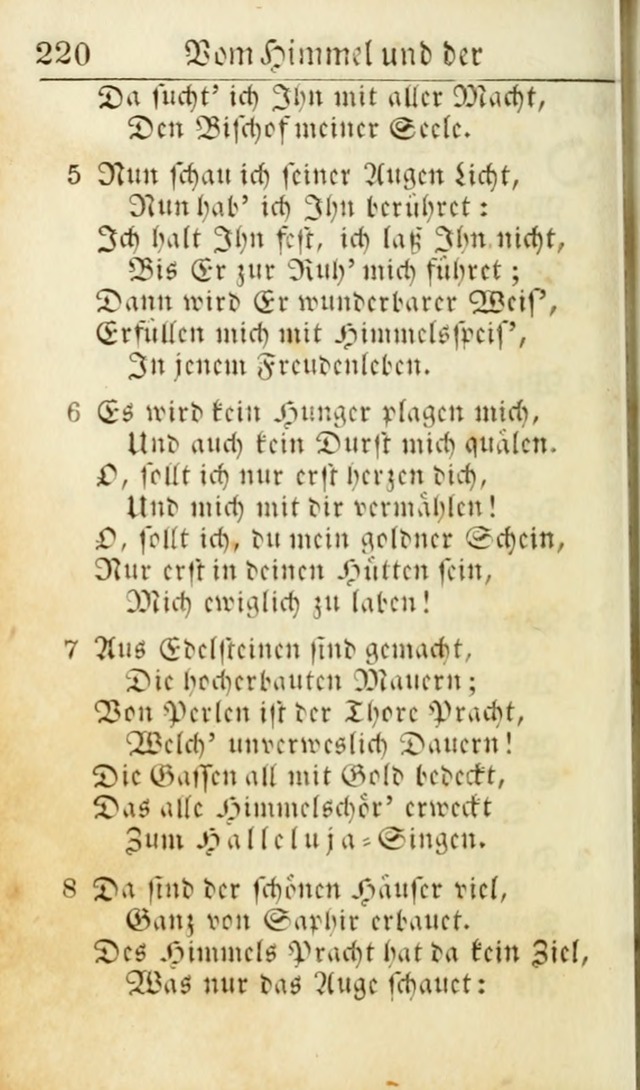 220 Vom Himmel und der
Da sucht’ ich Ihn mit aller Macht,
Den Bischof meiner Seele.
5 Nun schau ich seiner Augen Licht,
Nun hab’ ich Ihn berühret:
Ich halt Ihn fest, ich laß Ihn nicht,
Bis Er zur Ruh’ mich führet;
Dann wird Er wunderbarer Weis’,
Erfüllen mich mit Himmelsspeis’,
In jenem Freudenleben.
6 Es wird kein Hunger plagen mich,
Und auch kein Durst mich quälen.
O, sollt ich nur erst herzen dich,
Und mich mit dir vermählen!
O, sollt ich, du mein goldner Schein,
Nur erst in deinen Hütten sein,
Mich ewiglich zu laben!
7 Aus Edelsteinen sind gemacht,
Die hocherbauten Mauern;
Von Perlen ist der Thore Pracht,
Welch’ unverweslich Dauern!
Die Gassen all mit Gold bedeckt,
Das alle Himmelschör’ erweckt
Zum Halleluja-Singen.
8 Da sind der schönen Häuser viel,
Ganz von Saphir erbauet.
Des Himmels Pracht hat da kein Ziel,
Was nur das Auge schauet: